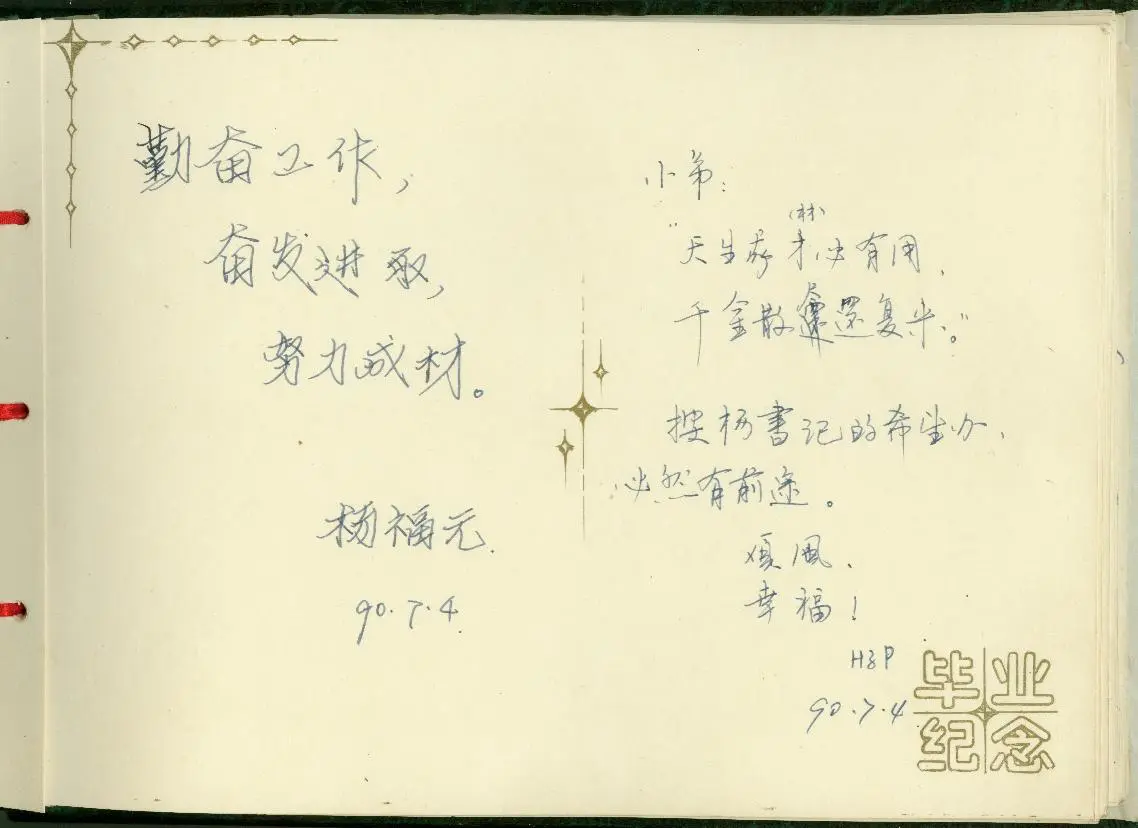 勤奋工作,
奋发进取,
努力成材。
杨福元.
90.7.4.
小弟:
(材)
"天生我才必有用,
千金散尽还复来。"
按杨书记的希望办,
必然有前途。
顺风、
幸福!
HZP
90.7.4
毕业
纪念